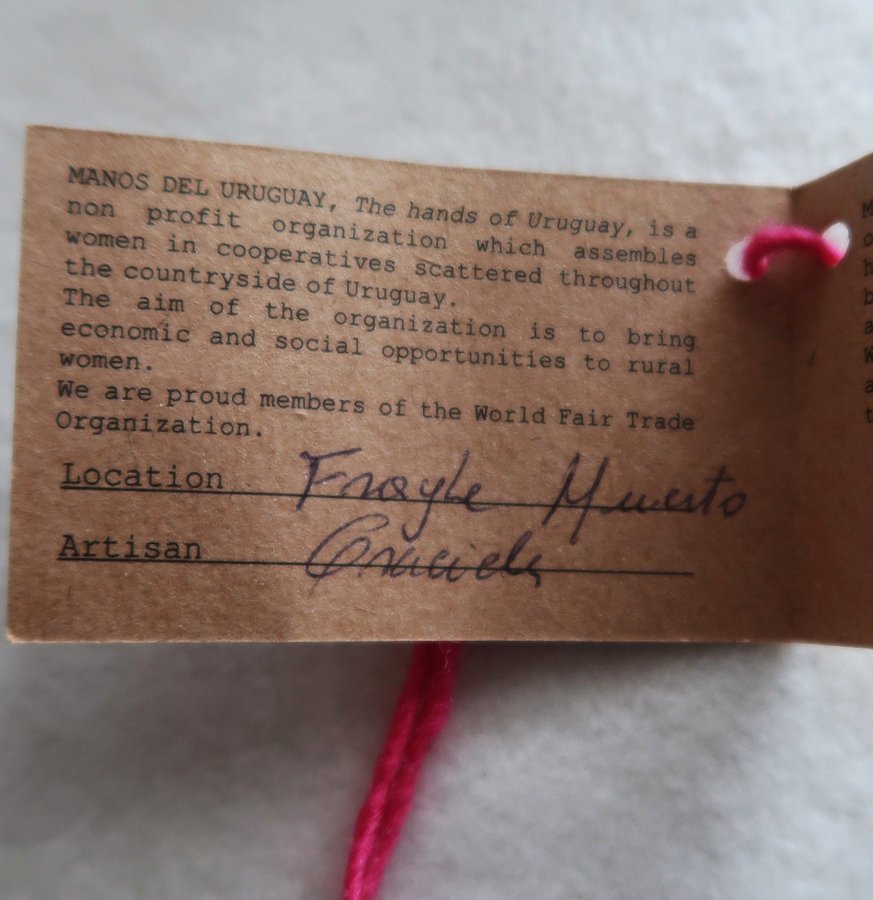 MANOS DEL URUGUAY, The hands of Uruguay, is a
non profit organization which assembles
women in cooperatives scattered throughout
the countryside of Uruguay.
The aim of the organization is to bring
economic and social opportunities to rural
women.
We are proud members of the World Fair Trade
Organization.
Location Frayle Muerto
Artisan Graciela